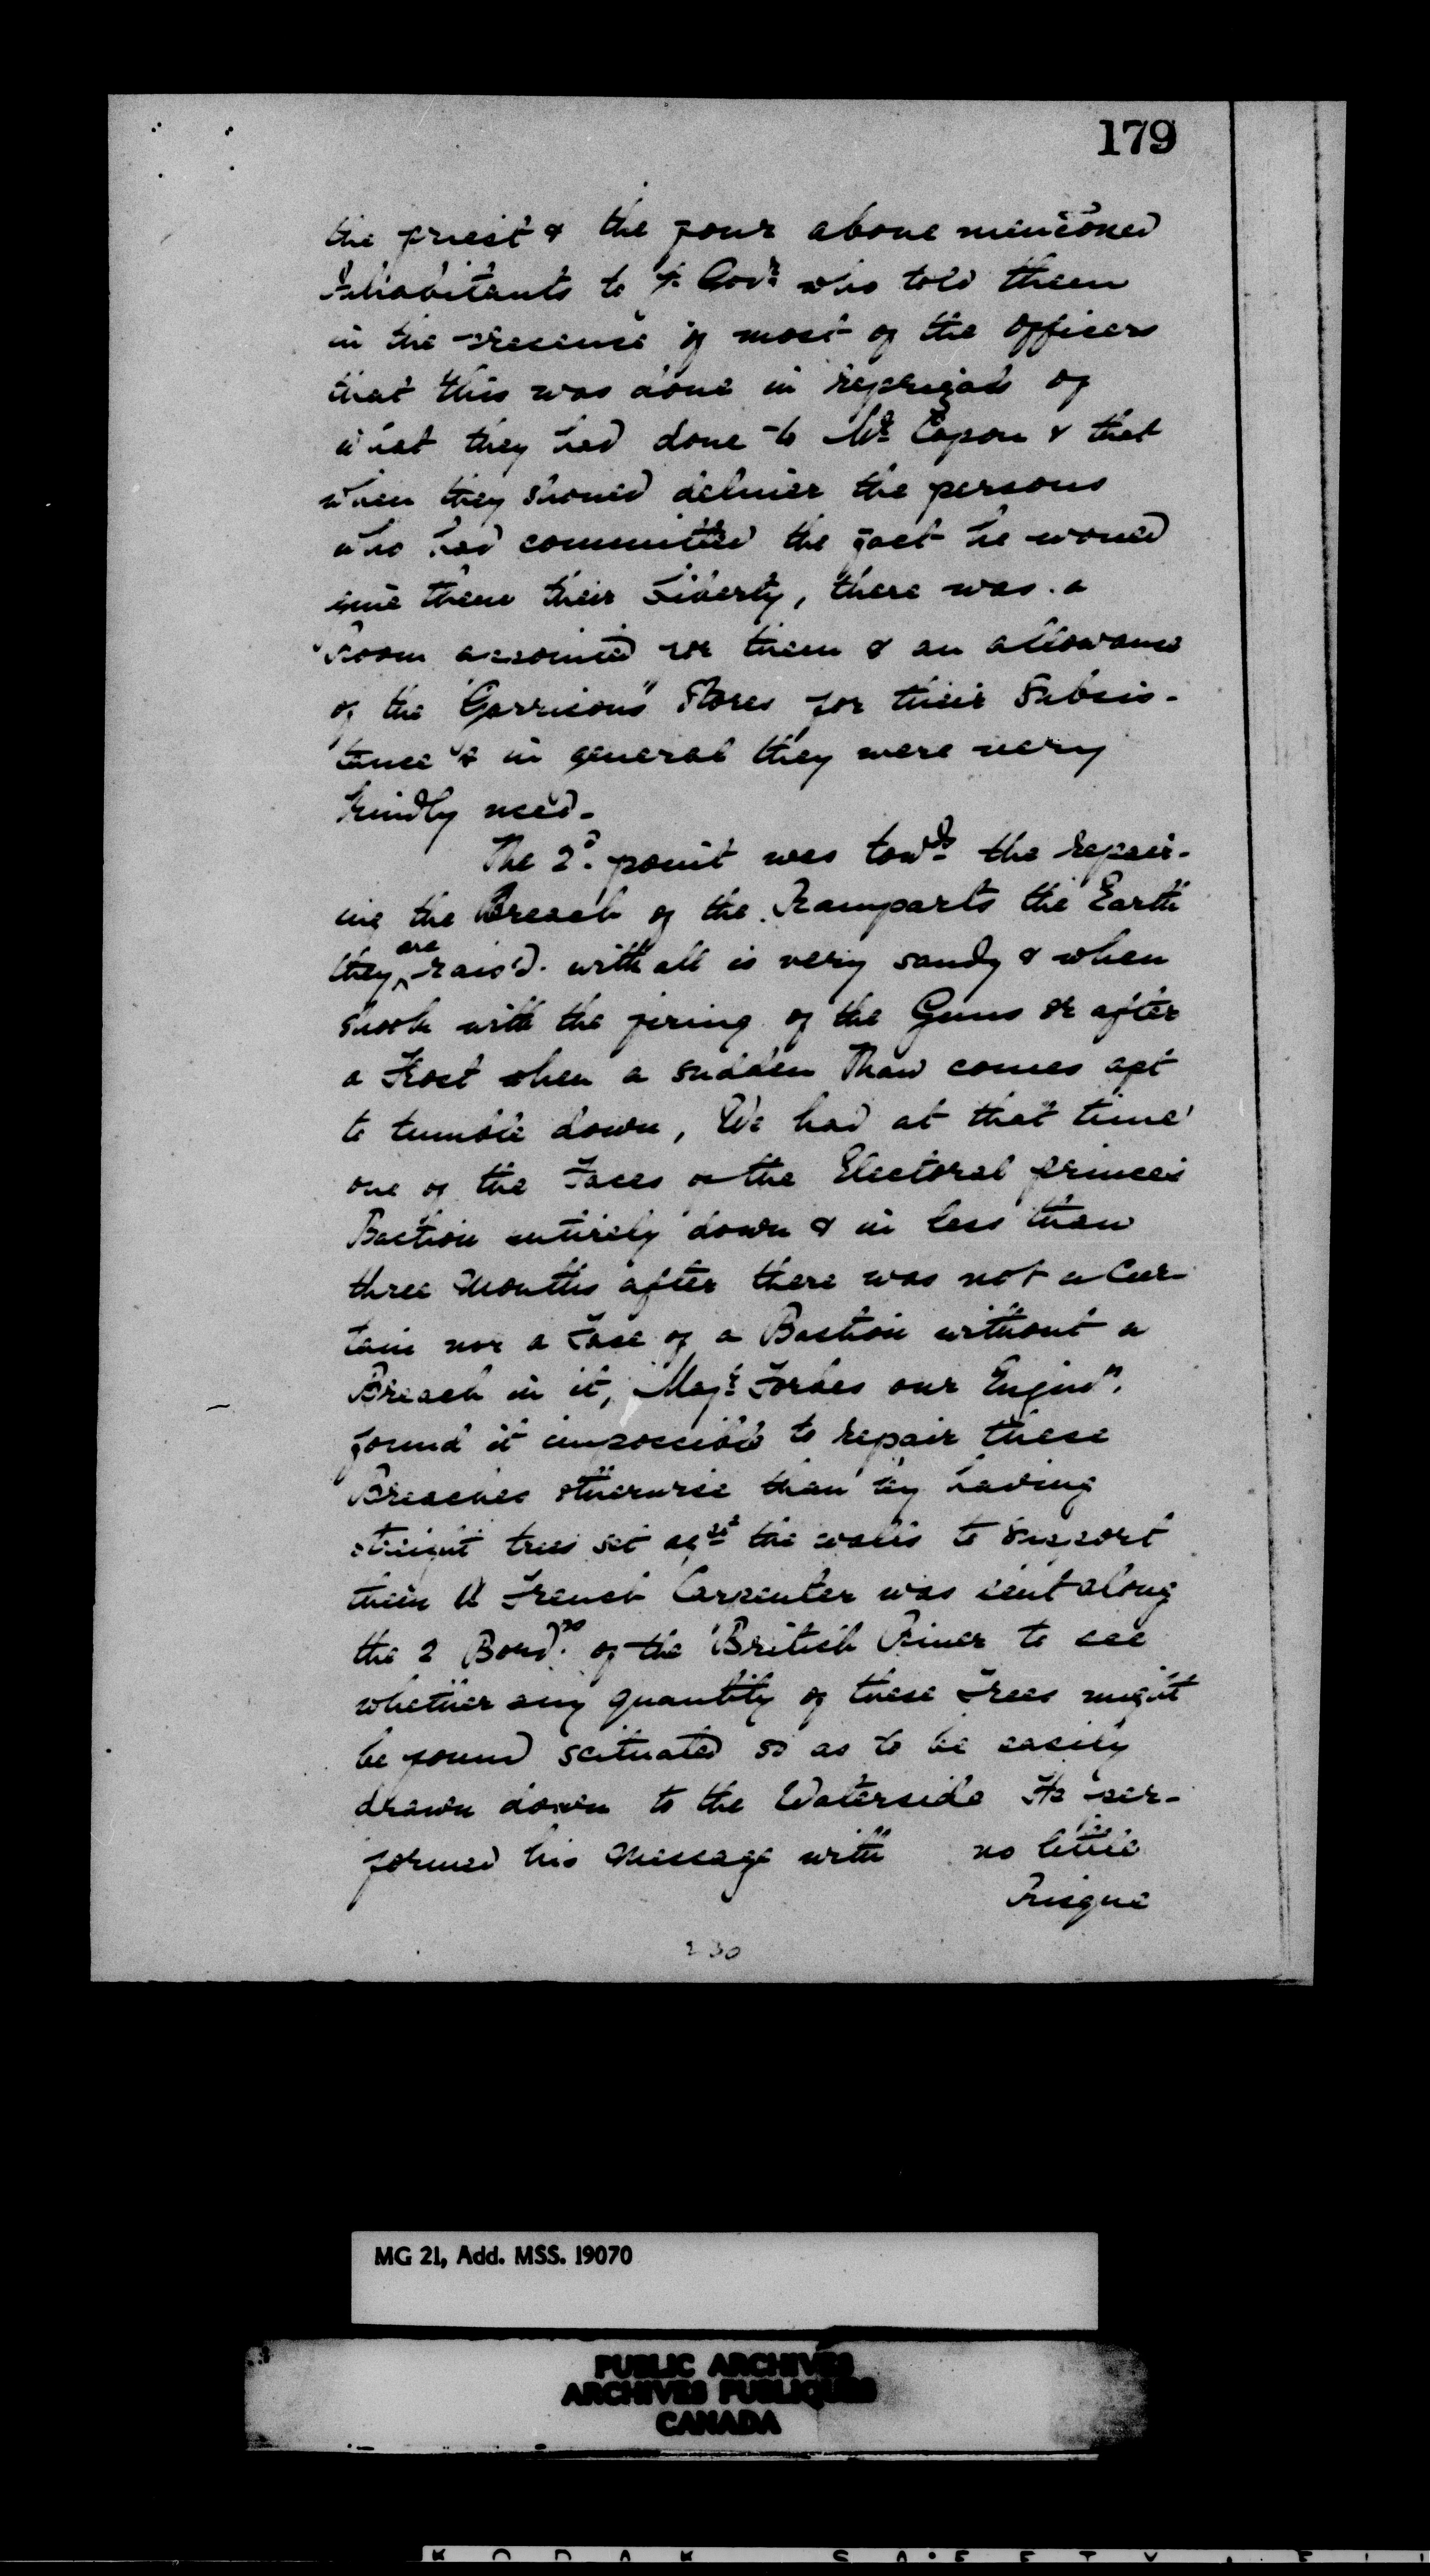 179
the priest & the four above mencõned
Inhabitants to ye Govr. who told them
in the presence of most of the officers
that this was done in reprizals of
what they had done to Mr. Capon & that
when they shoued deliver the persons
who had committed the fact he woued
give them their Liberty, there was a
Room appointed for them & an allowance
of the Garrisons Stores for their Subsis-
tance & in general they were very
kindly used.
The 2d. point was towds. the repair-
ing the Breach of the Ramparts the Earth
they are rais'd. with all is very sandy & when
shook with the firing of the Guns or after
a Frost when a sudden Thaw comes apt
to tumble down, We had at that time
one of the Faces on the Electoral princes
Bastion entirely down & in less than
three Months after there was not a Cur-
tain nor a Face of a Bastion without a
Breach in it, Majr. Forbes our Enginr.
found it impossible to repair these
Breaches otherwise than by having
streight trees set agst. the walls to support
them A French Carpenter was sent along
the 2 of the British River to see
whether any quantity of these Trees might
be found scituated so as to be easily
drawn down to the Waterside He per-
formed his Message with no little
Risque
230
MG 21, Add. MSS. 19070
PUBLIC ARCHIVES
ARCHIVES PUBLIQUES
CANADA
KODAK SAFETY